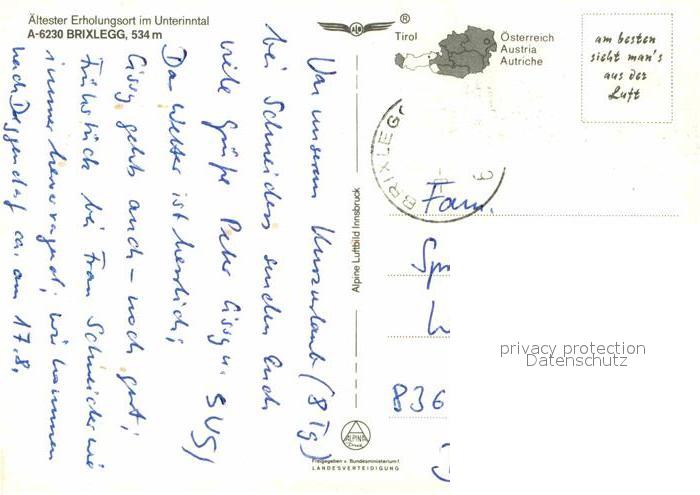 Ältester Erholungsort im Unterinntal
A-6230 BRIXLEGG, 534 m
Von unserem Kurzurlaub (8 Tg)
bei Schneiders senden Euch
viele Grüße Peter Cissy u.
Da Wetter ist herrlich;
Cissy gehts auch – noch gut;
Frühstück bei Frau Schneider wie
immer hervorragend; wir kommen
nach Deggendorf ca. am 17.8.
Alpine Luftbild Innsbruck
ALPINE
Freigegeben v. Bundesministerium f.
LANDESVERTEIDIGUNG
®
Tirol
Österreich
Austria
Autriche
am besten
sieht man's
aus der
Luft
BRIXLEGG
Fam.
836
privacy protection
Datenschutz